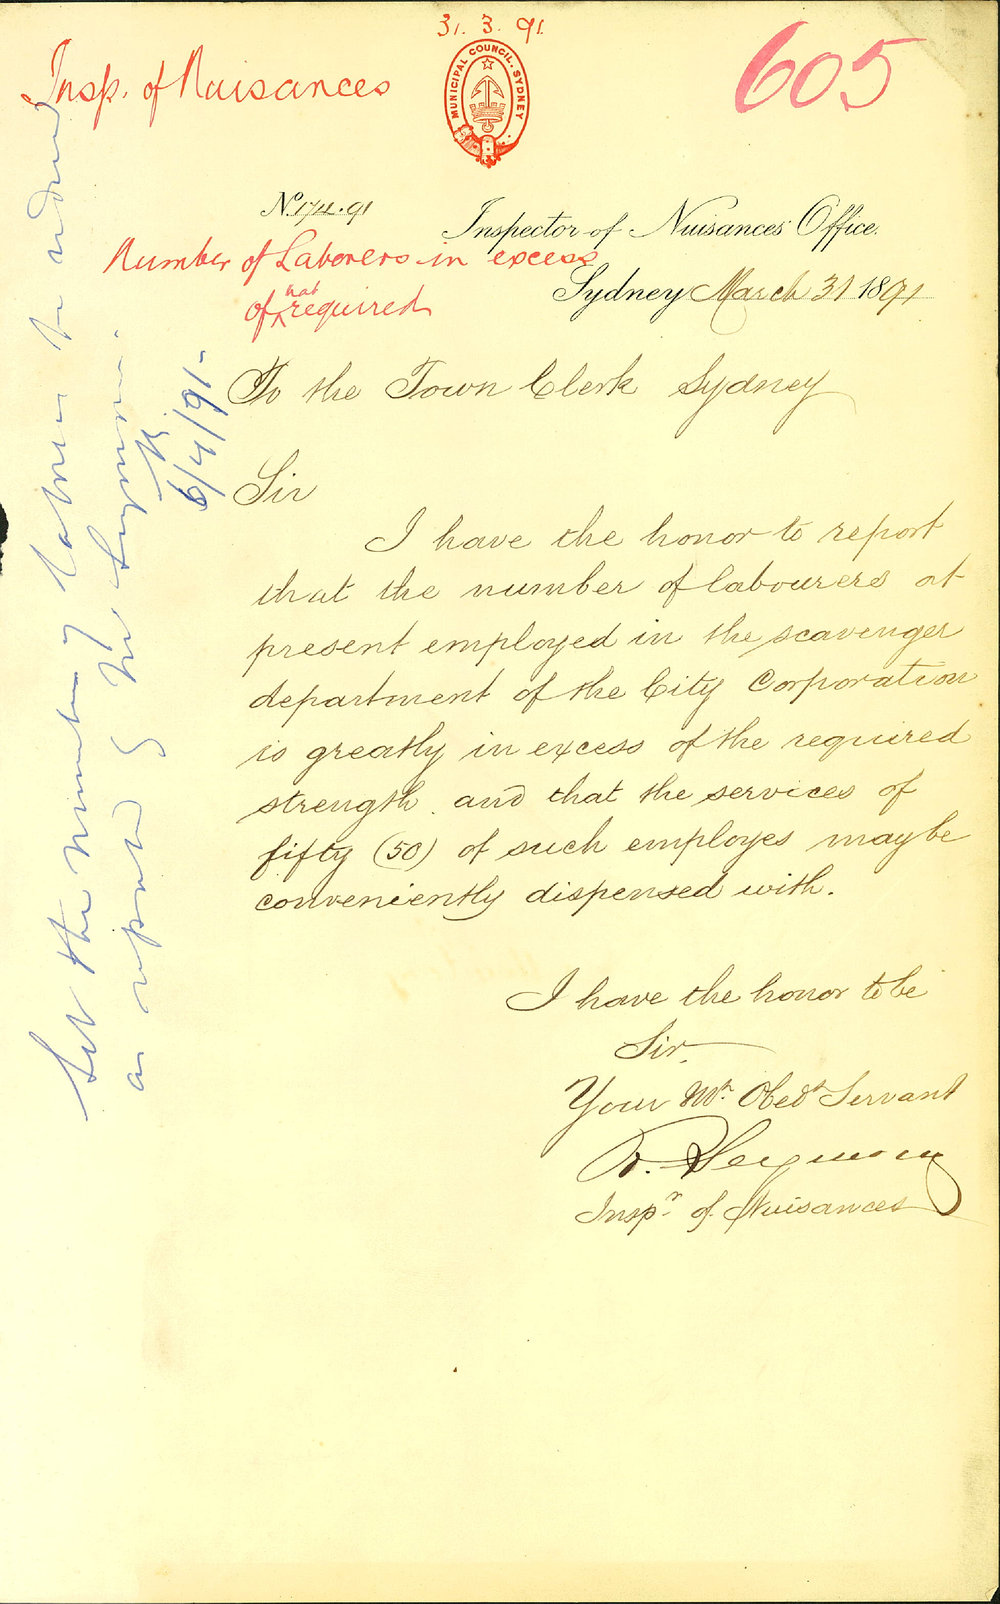 31. 3. 91.
Insp. of Nuisances
605
MUNICIPAL COUNCIL. SYDNEY
No. 174.91
Inspector of Nuisances Office.
Number of Laborers in excess
of that required
Sydney March 31 1891
To the Town Clerk Sydney
Sir
I have the honor to report
that the number of labourers at
present employed in the scavenger
department of the City Corporation
is greatly in excess of the required
strength and that the services of
fifty (50) of such employes may be
conveniently dispensed with.
I have the honor to be
Sir.
Your Mt. Obedt Servant
R. Seymour
Inspr. of Nuisances
Let the number of labourers be reduced
as reported by Mr Seymour.
6/4/91-